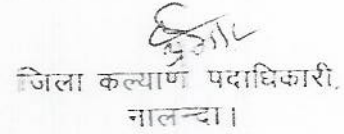 जिला कल्याण पदाधिकारी,
नालन्दा।